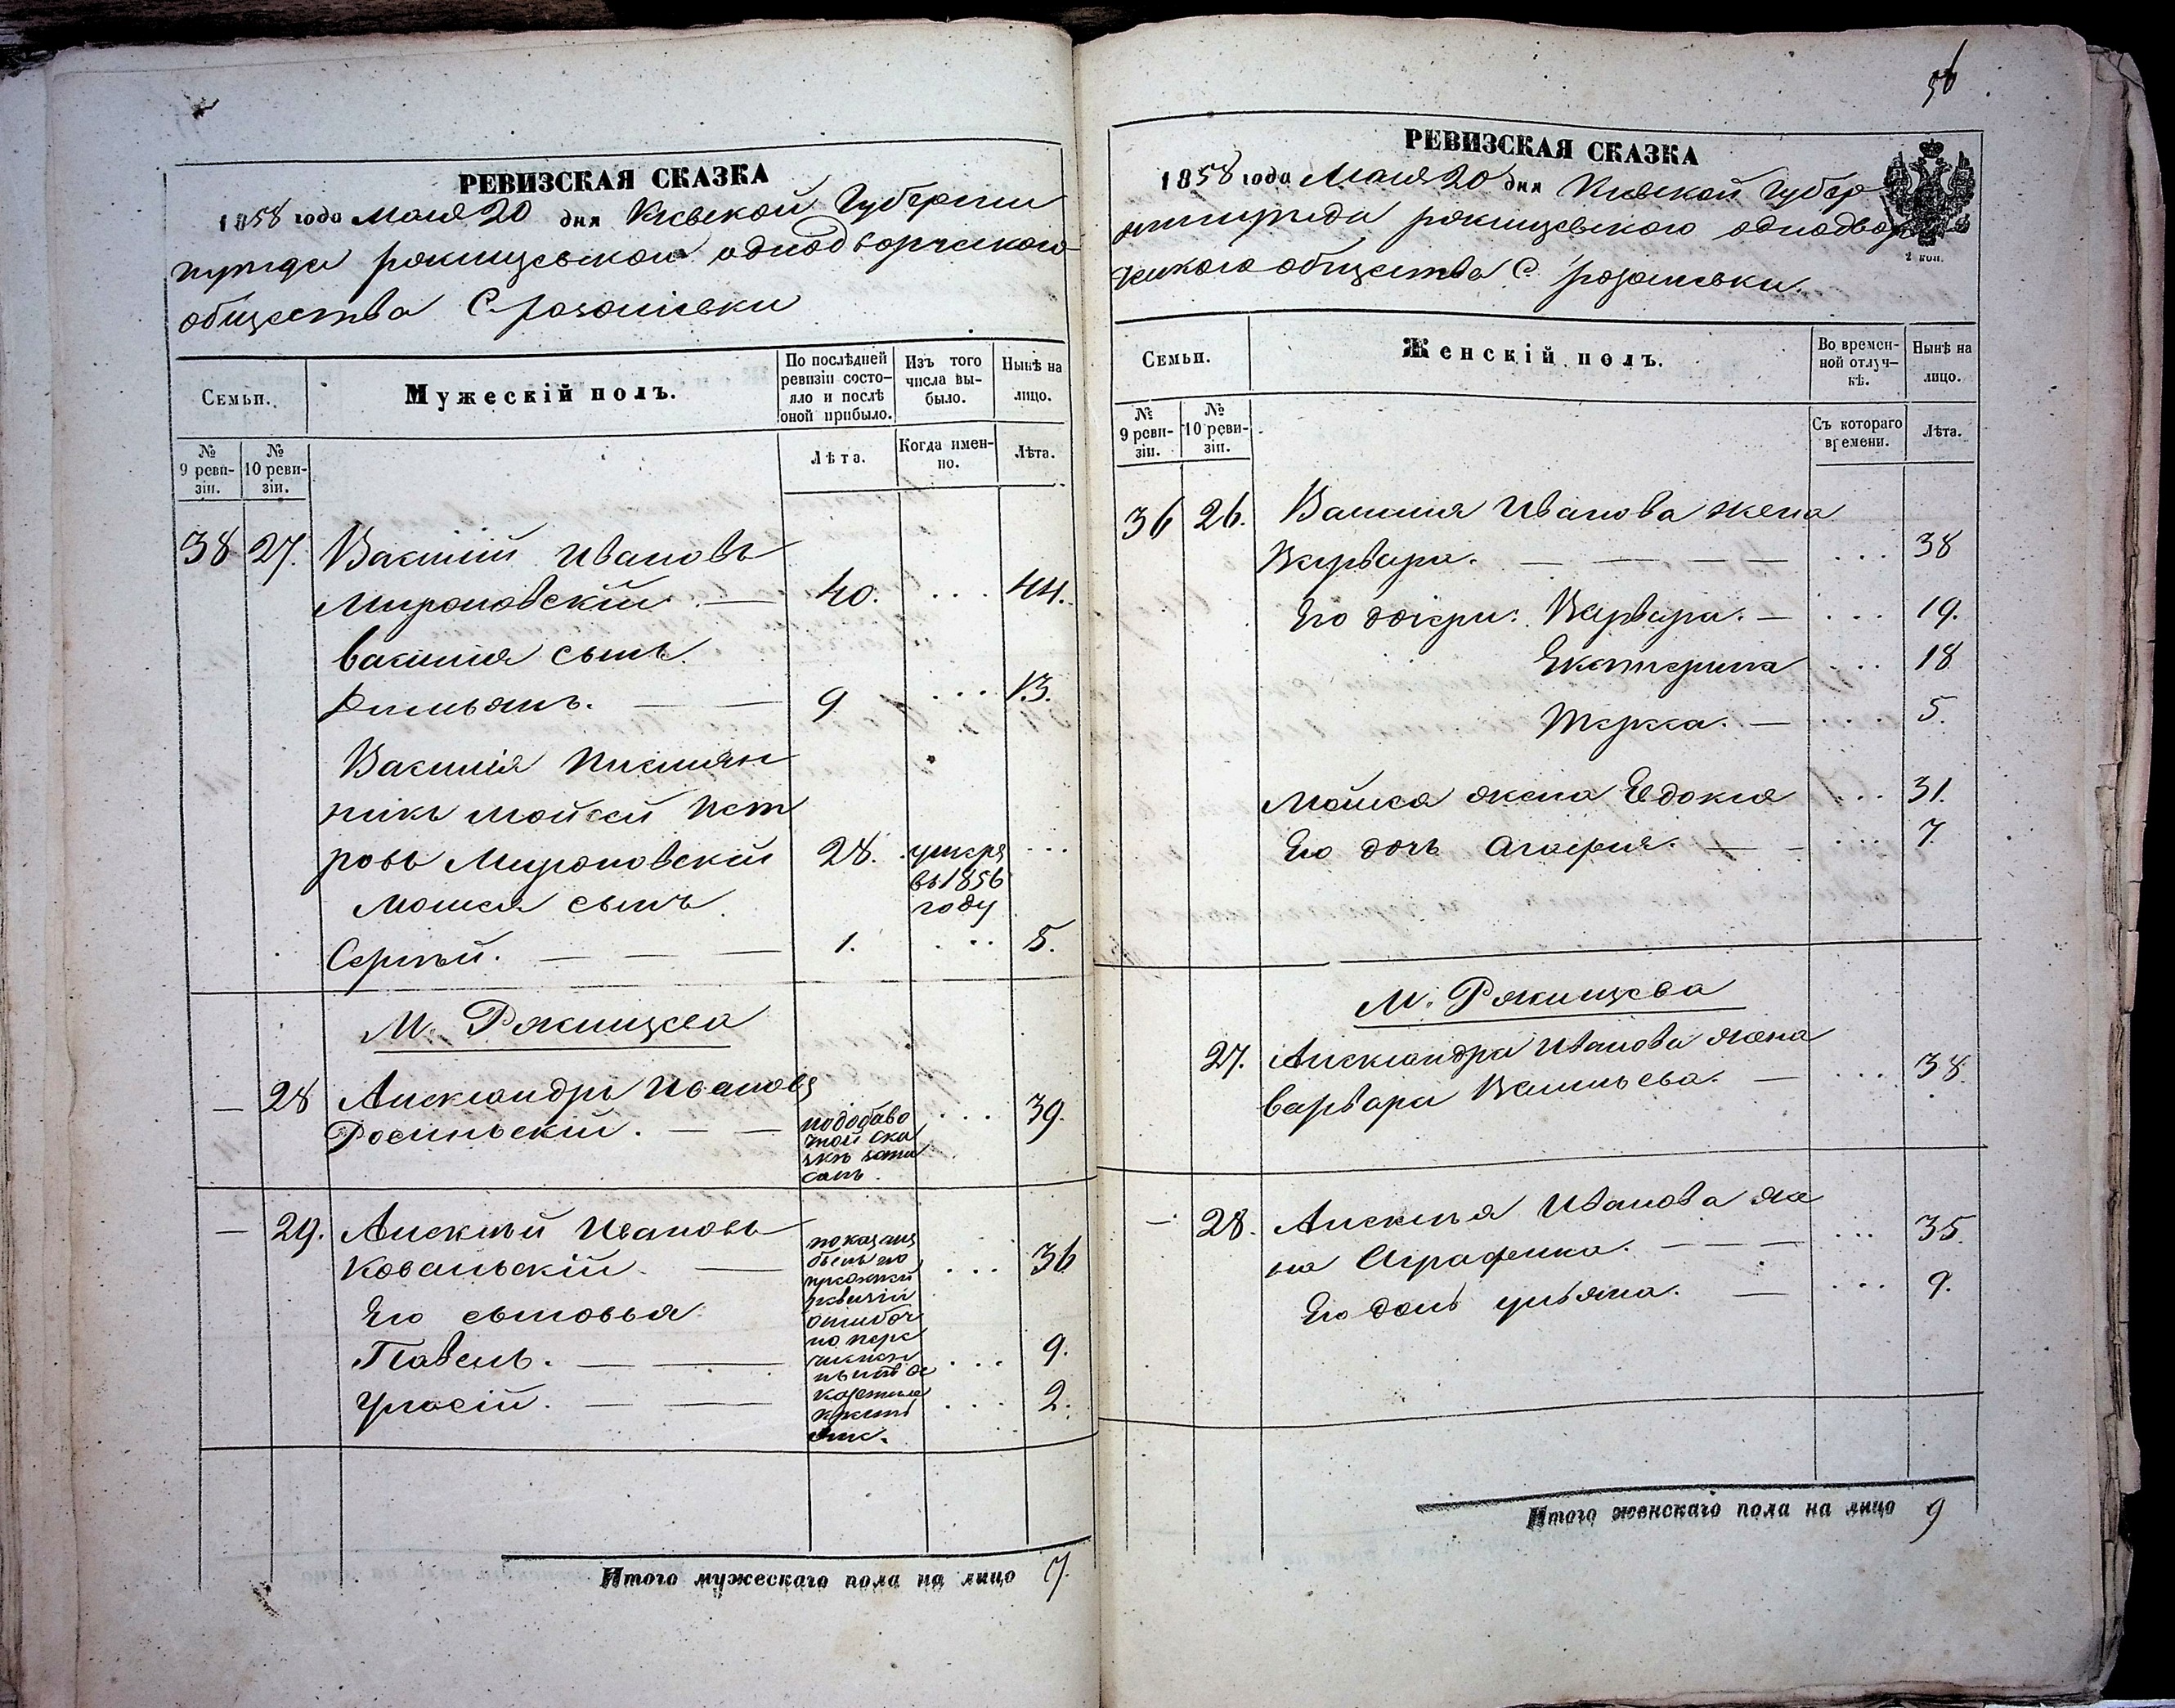 РЕВИЗСКАЯ СКАЗКА
1858 года Мая 20 дня Кіевской Губерніи
общества С.
Семьи.
Мужескій полъ.
По послѣдней ревизіи состо-
яло и послѣ оной прибыло.
Изъ того числа вы-
было.
Нынѣ на лицо.
№ 9 реви-
зіи.
№ 10 реви-
зіи.
Лѣта.
Когда имен-
но.
Лѣта.
38 27. Василій Ивановъ
Мироновскій. — 40. ... 44.
василия сынъ
9 ... 13.
Василія племян
никъ Мойсей Пет
ровъ Мироновскій 28. умеръ ...
въ 1856
году
Мойсея сынъ
Сергѣй. — — — 1. ... 5.
М.
— 28 Александръ Ивановъ
— — ... 39.
по добаво
чной ска
зкѣ запи
санъ.
— 29. Алексѣй Ивановъ
Ковальскій. — ... 36
показанъ
былъ по
ревизіи
ошибоч
но пере
Его сыновья
Павелъ. — — ... 9.
— — ... 2.
Итого мужескаго пола на лицо 7.
56
РЕВИЗСКАЯ СКАЗКА
1858 года Мая 20 дня Кіевской Губер
ческого общества С.
2 коп.
Семьи.
Женскій полъ.
Во времен-
ной отлуч-
кѣ.
Нынѣ на
лицо.
№ 9 реви-
зіи.
№ 10 реви-
зіи.
Съ котораго
времени.
Лѣта.
36 26. Василия Иванова жена
Варвара. — — — — ... 38
Его дочери: Варвара. — ... 19.
Екатерина ... 18
— ... 5.
Мойсея жена Евдокия ... 31.
Его дочь Агафия. — - ... 7.
М.
27. Александра Иванова жена
варвара Васильева. — ... 38.
— 28. Алексѣя Иванова же
на Аграфена. — — — ... 35.
Его дочь ульяна. — ... 9.
Итого женскаго пола на лицо 9